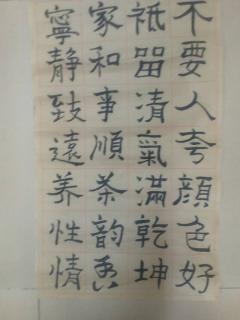 不要人夸顔色好
祗留清氣滿乾坤
家和事順茶韵香
寧静致遠养性情